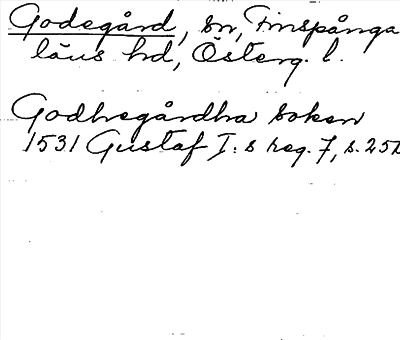 Godegård, sn, Finspånga
läns hd, Österg. l.
Godhegårdha soken
1531 Gustaf I:s reg. 7, s. 252